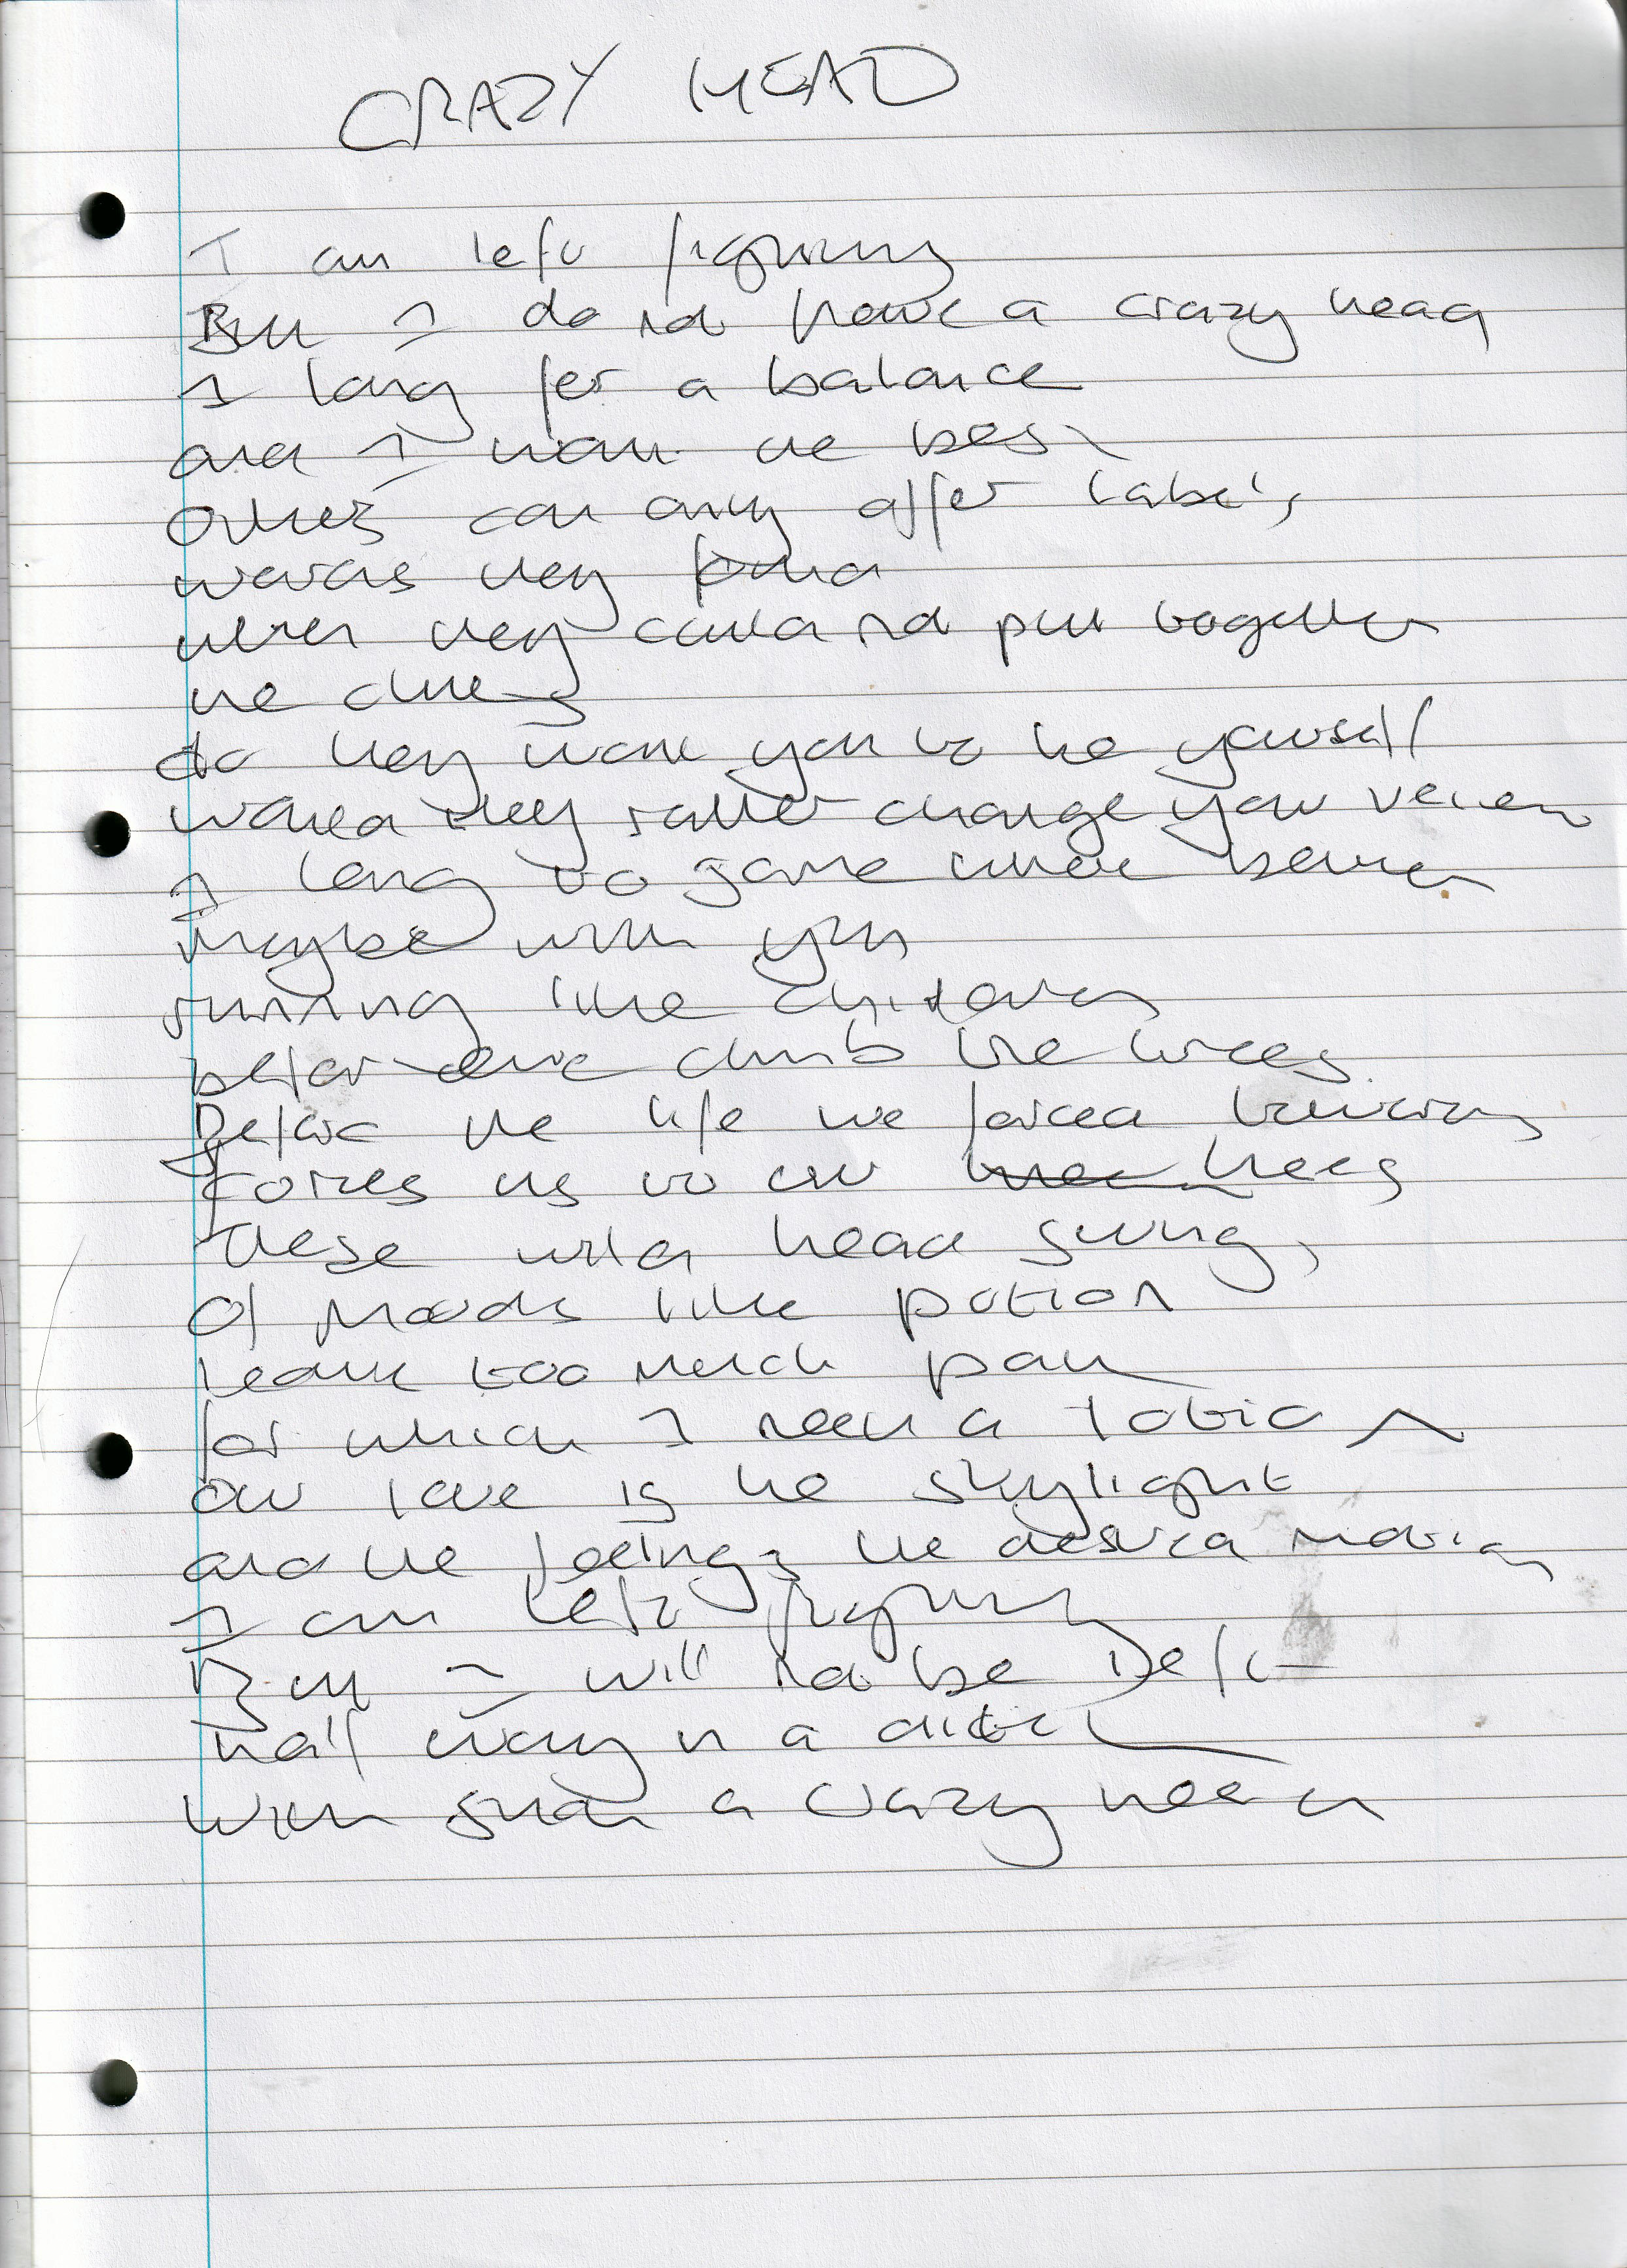 CRAZY HEAD
I am left fighting
But I do not have a crazy head
I long for a balance
and I want the best
Others can only offer labels
words they found
when they could not put together
the clues
do they want you to be yourself
would they rather change your view
I long to some where better
maybe with you
running like children
before we climb the trees
Before the life we forced
Forces us to our knees
These wild head swings
of moods like potion
leave too much pain
for which I need a lotion
our love is the skylight
and the feelings the desired motion
I am left fighting
But I will not be Left
half way in a ditch
with such a crazy head